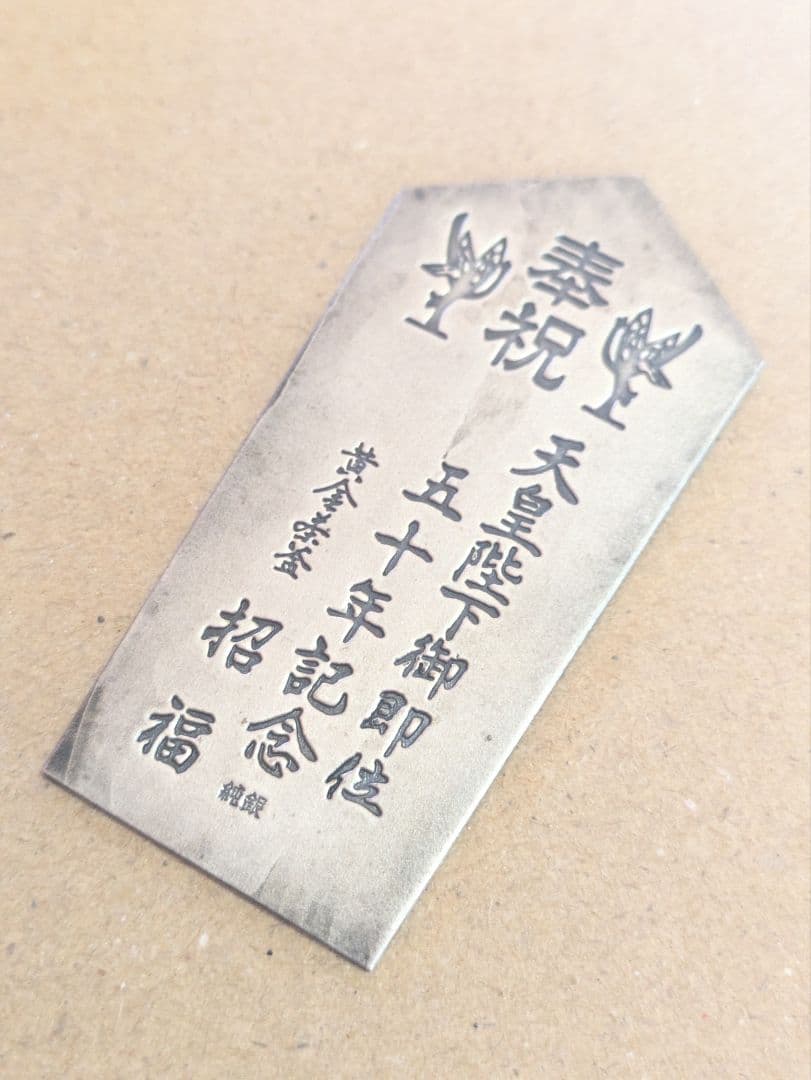 奉祝
天皇陛下御即位
五十年記念
黄金参釜
招福
純銀